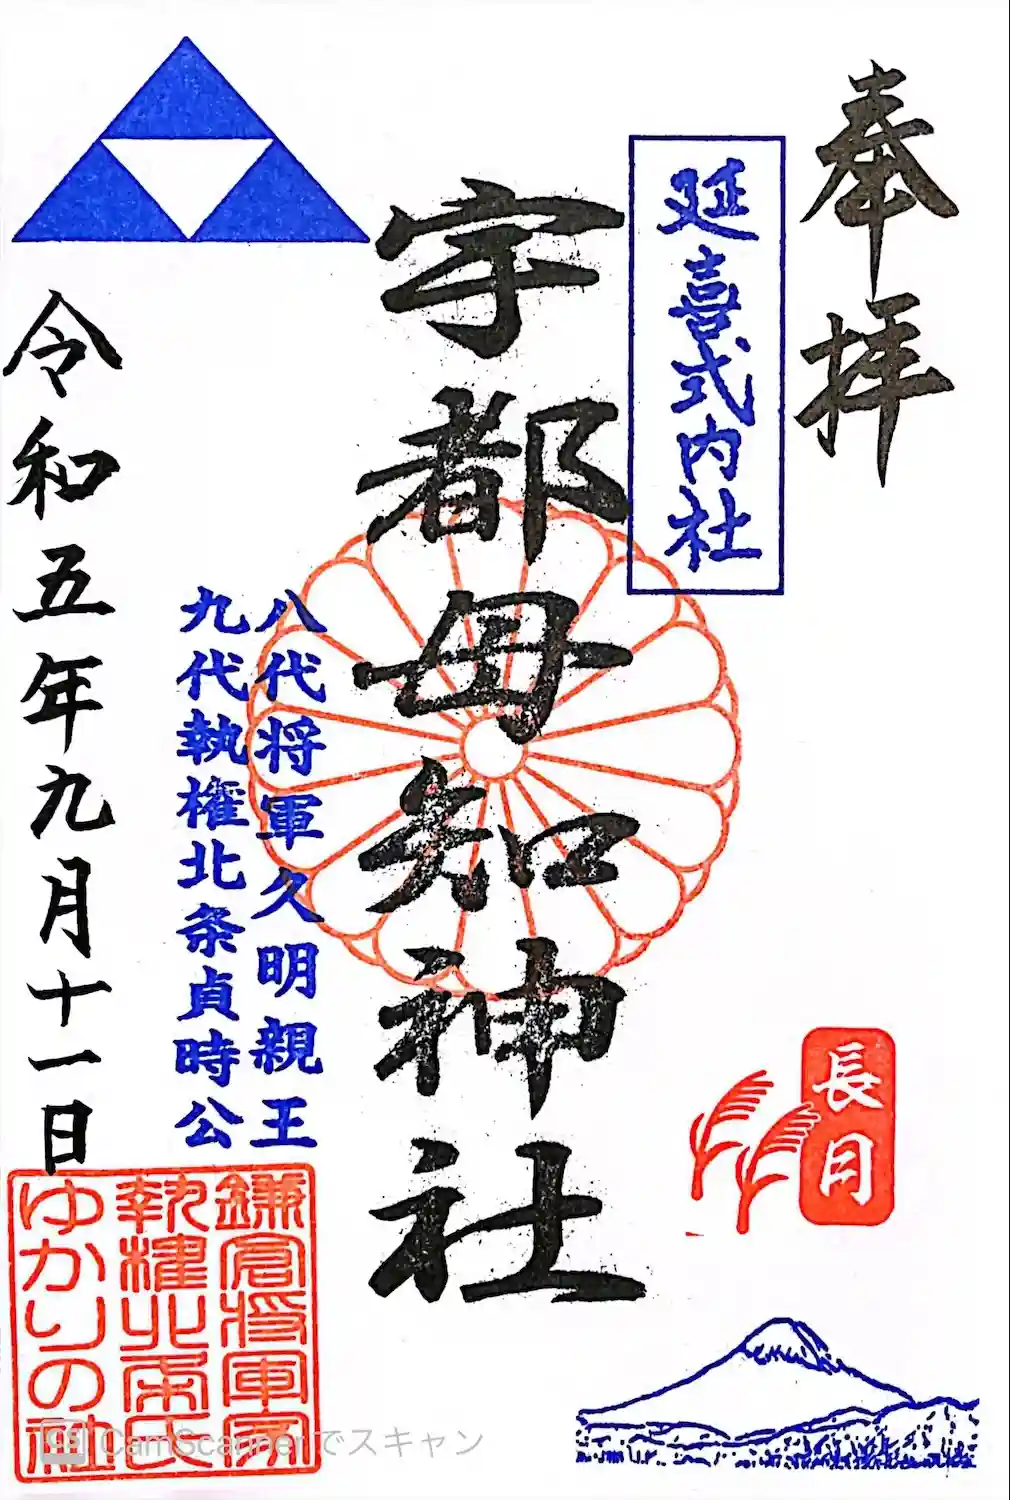 奉拝
延喜式内社
宇都母知神社
長月
八代将軍久明親王
九代執権北条貞時公
令和五年九月十一日
鎌倉将軍家
執権北条氏
ゆかりの社
CS CamScannerでスキャン